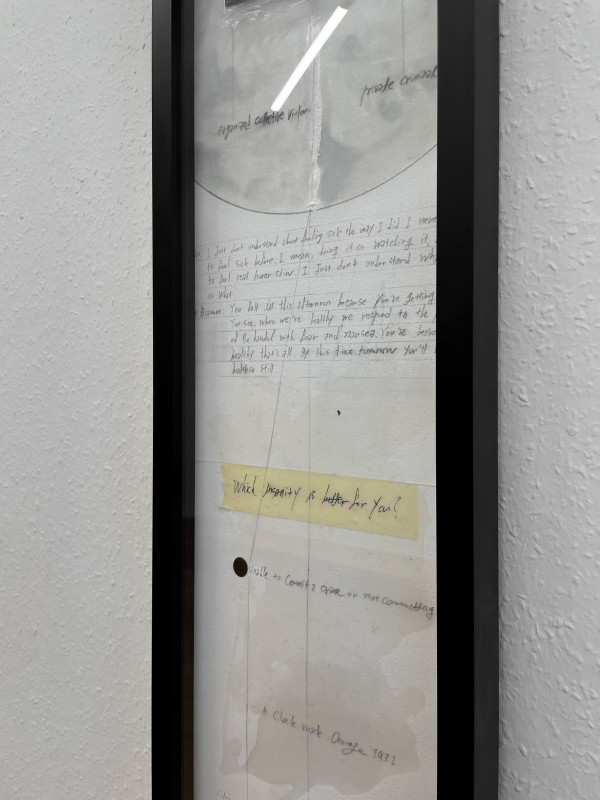 private criminal
organized collective violen
I Just don't understand about feeling sick the way I did. I never
to feel sick before. I mean, doing it or watching it,
to feel real horrorshow. I Just don't understand why
or What
You felt ill this afternoon because you're getting
You see, when we're healthy we respond to the
of the hateful with fear and nausea. You're becom
healthy that's all. By this time tomorrow You'll
healthier still
Which Insanity is better for You?
to Commit a Crime or not committing
A Clock work Orange